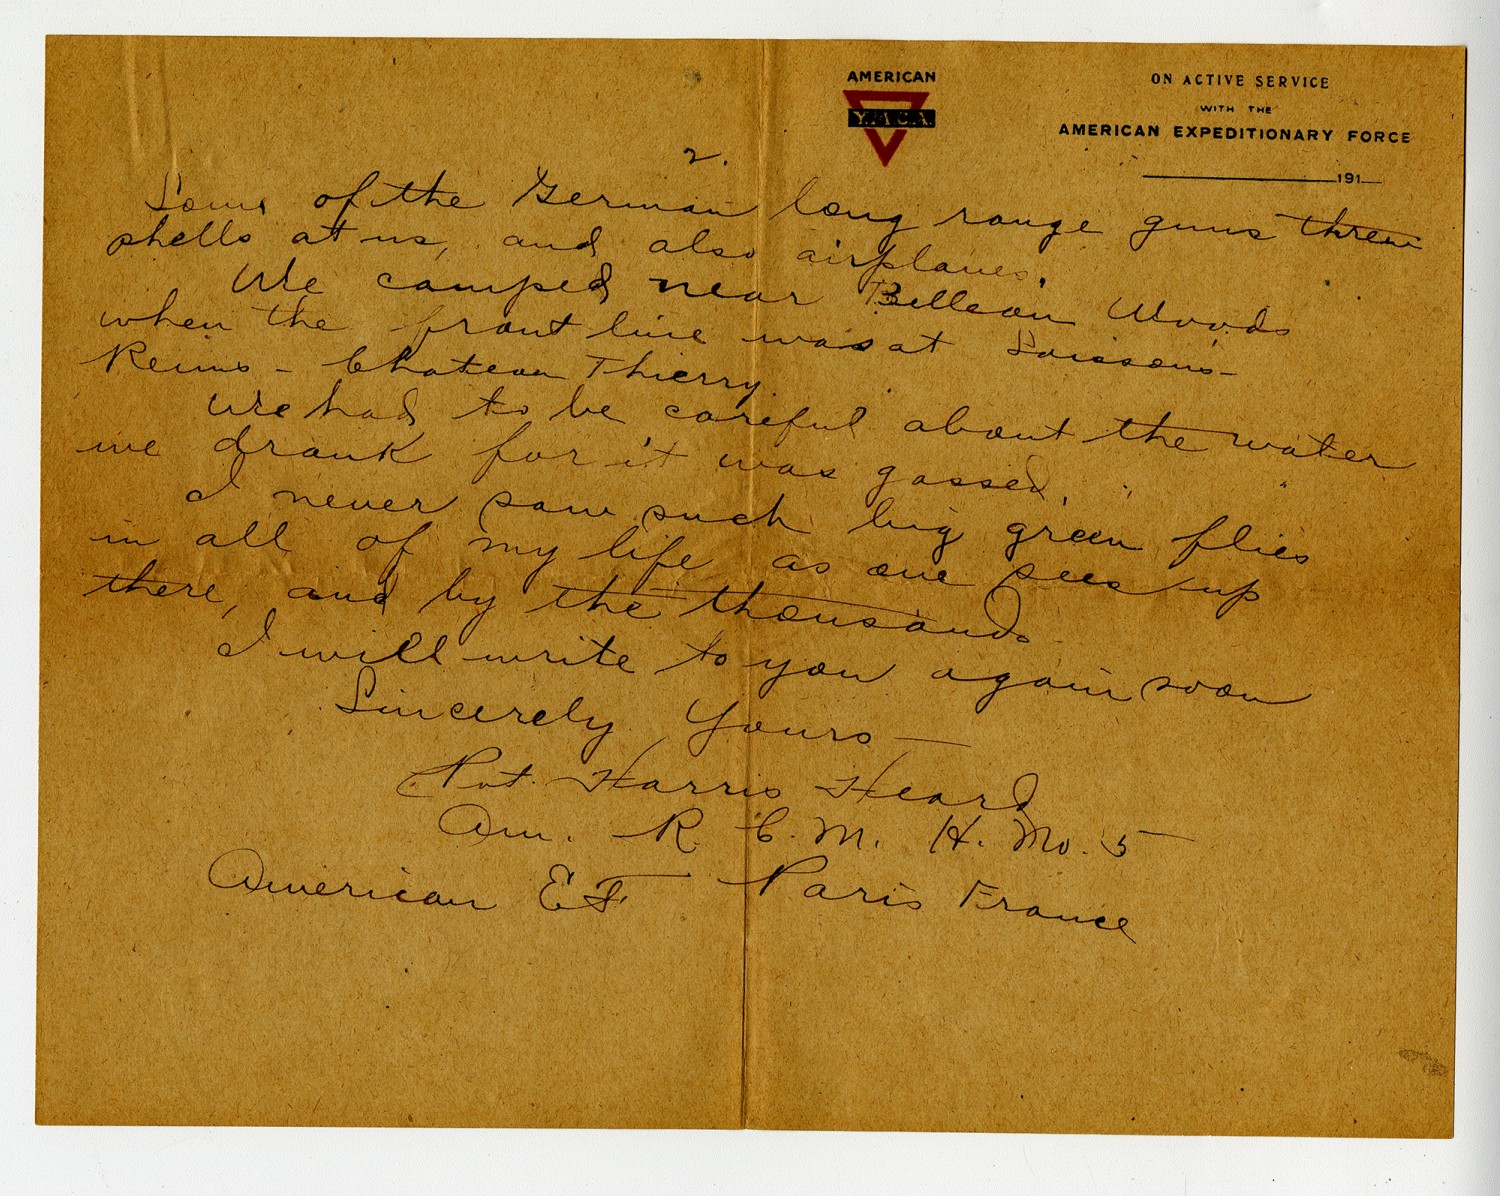 AMERICAN
Y.M.C.A.
ON ACTIVE SERVICE
WITH THE
AMERICAN EXPEDITIONARY FORCE
191
2.
Some of the German long range guns threw
shells at us, and also airplanes.
We camped near Belleau Woods
when the front line was at Soissons-
Reims - Chateau Thierry.
We had to be careful about the water
we drank for it was gassed.
I never saw such big green flies
in all of my life as one sees up
there, and by the thousands
I will write to you again soon
Sincerely Yours -
Pvt. Harris Heard
Am. R. C. M. H. No. 5
American E F Paris France